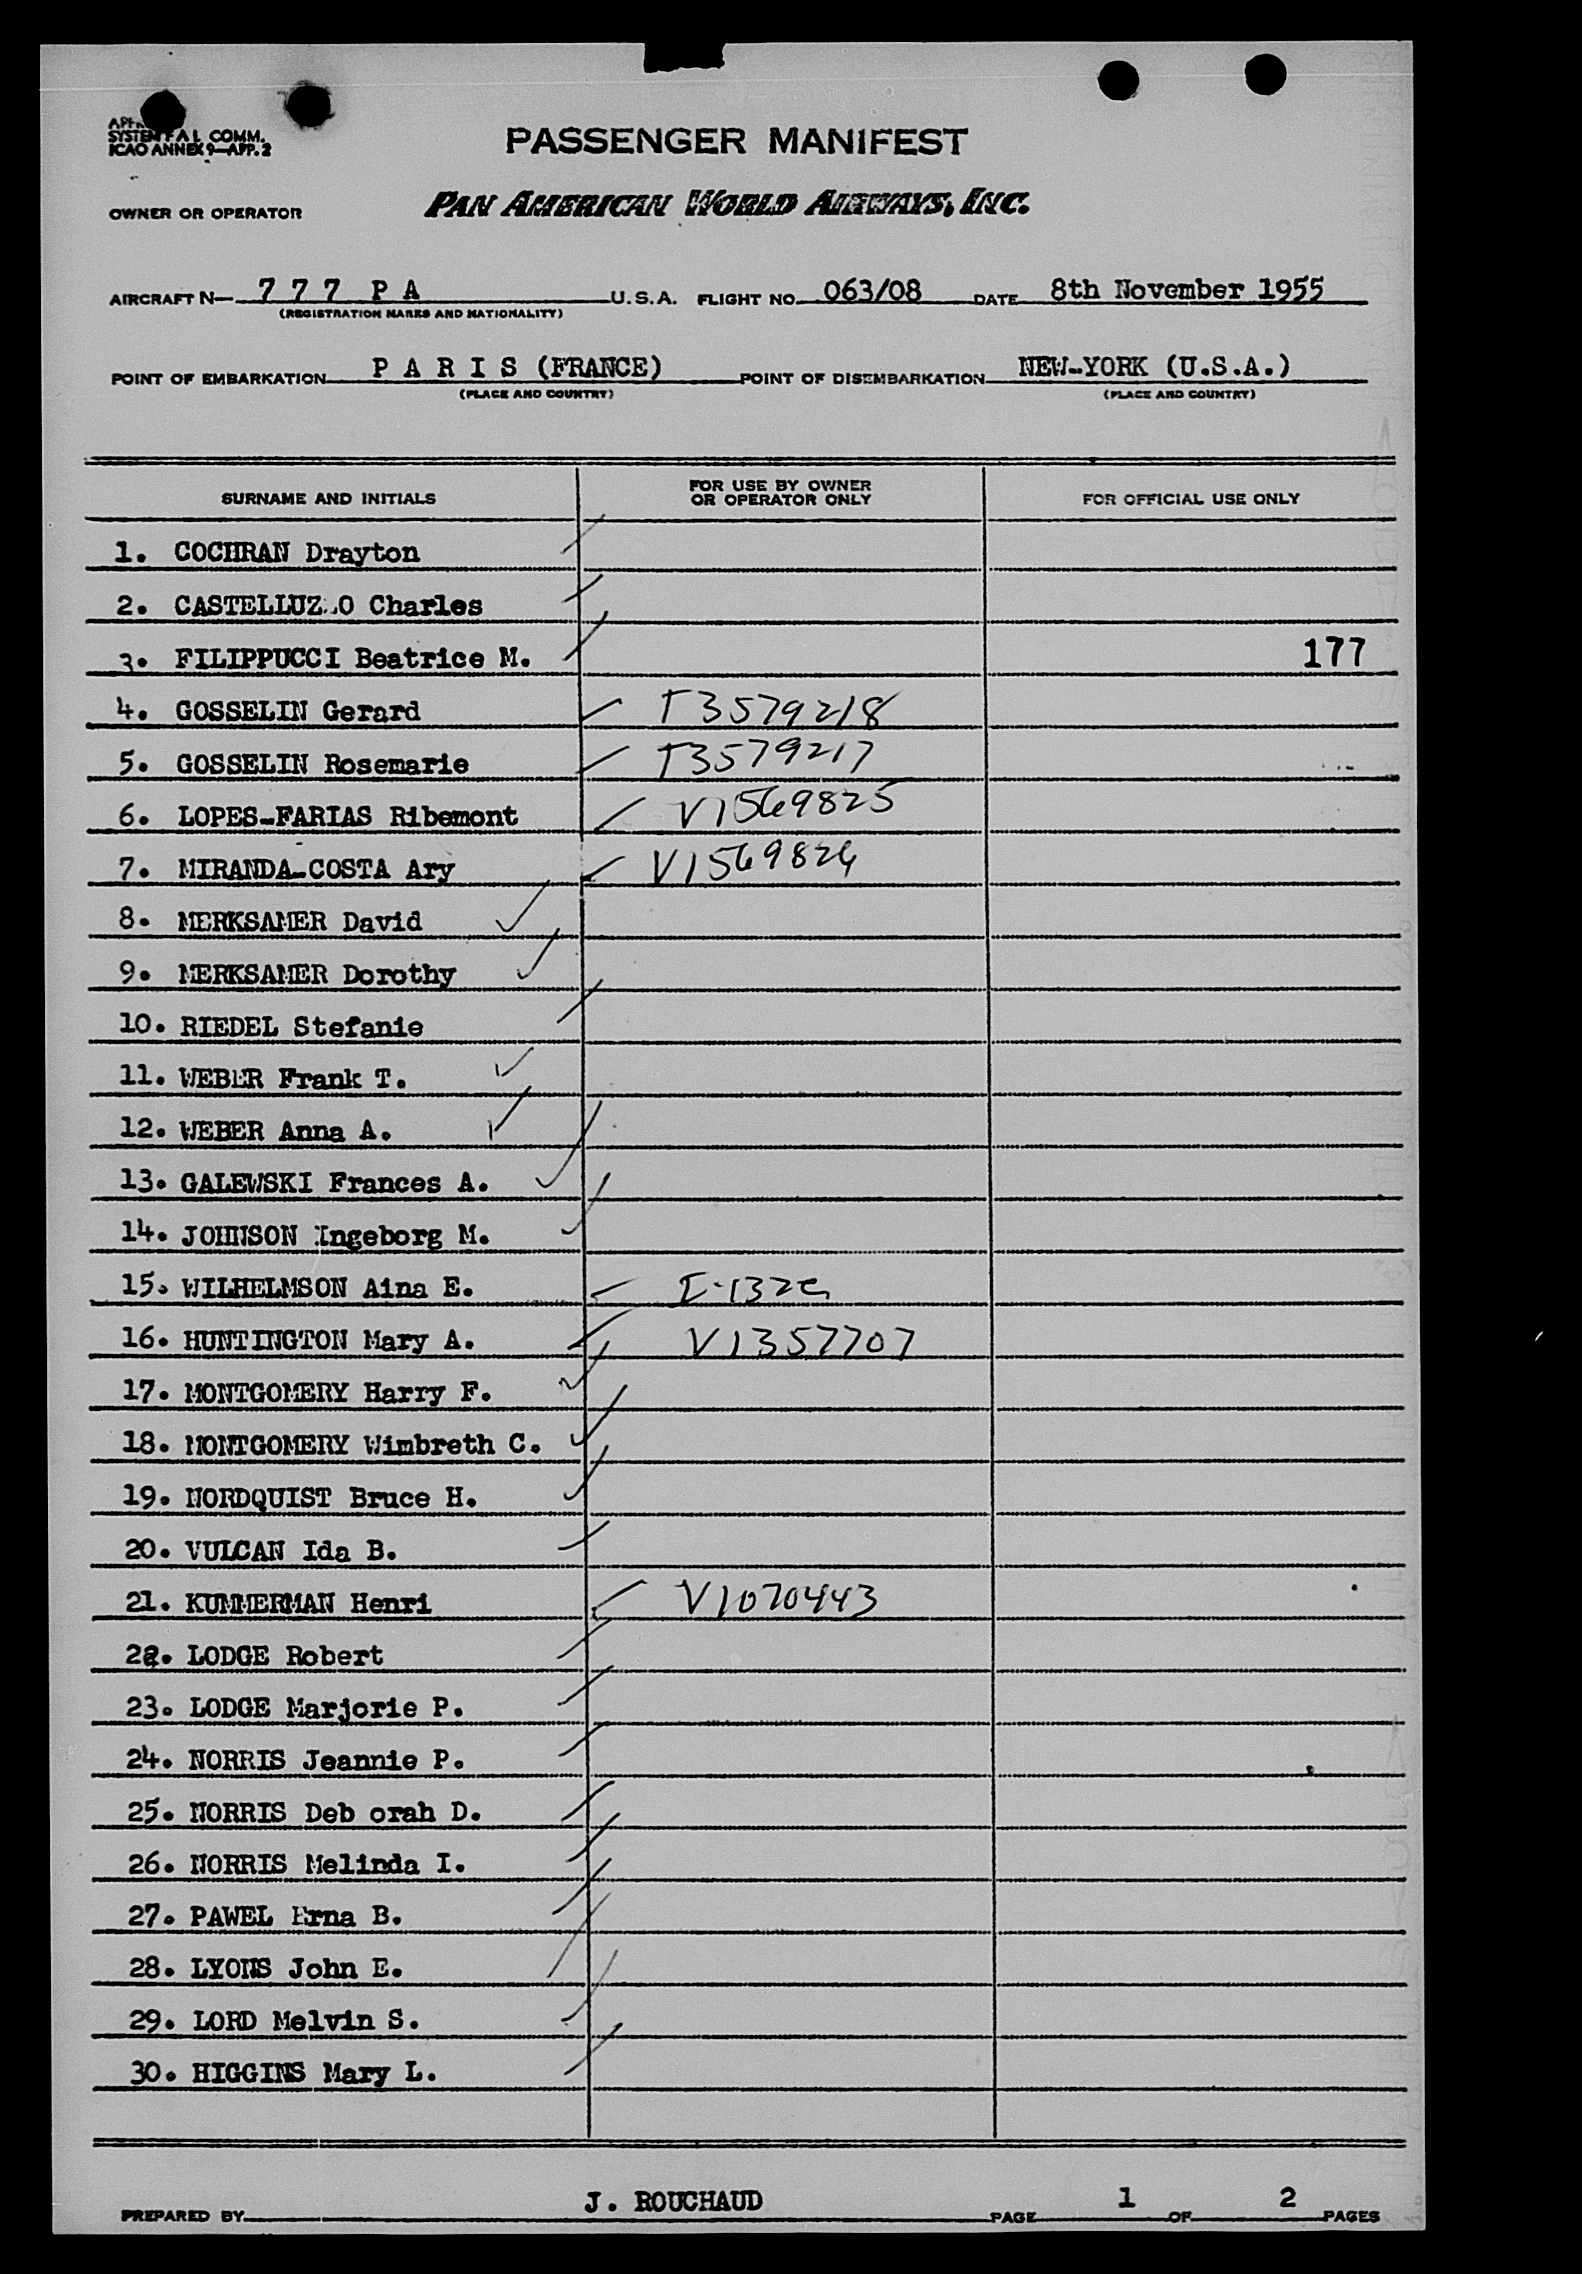 SYSTEM FAL COMM.
ICAO ANNEX 9—APP. 2
PASSENGER MANIFEST
OWNER OR OPERATOR PAN AMERICAN WORLD AIRWAYS, INC.
AIRCRAFT N— 7 7 7 P A U.S.A. FLIGHT NO. 063/08 DATE 8th November 1955
(REGISTRATION MARKS AND NATIONALITY)
POINT OF EMBARKATION P A R I S (FRANCE) POINT OF DISEMBARKATION NEW-YORK (U.S.A.)
(PLACE AND COUNTRY) (PLACE AND COUNTRY)
SURNAME AND INITIALS FOR USE BY OWNER OR OPERATOR ONLY FOR OFFICIAL USE ONLY
1. COCHRAN Drayton
2. CASTELLUZ.O Charles
3. FILIPPUCCI Beatrice M. 177
4. GOSSELIN Gerard T3579218
5. GOSSELIN Rosemarie T3579217
6. LOPES-FARIAS Ribemont V1569825
7. MIRANDA-COSTA Ary V1569824
8. MERKSAMER David
9. MERKSAMER Dorothy
10. RIEDEL Stefanie
11. WEBER Frank T.
12. WEBER Anna A.
13. GALEWSKI Frances A.
14. JOHNSON Ingeborg M.
15. WILHELMSON Aina E.
16. HUNTINGTON Mary A. V1357707
17. MONTGOMERY Harry F.
18. MONTGOMERY Wimbreth C.
19. NORDQUIST Bruce H.
20. VULCAN Ida B.
21. KUMMERMAN Henri V1070443
22. LODGE Robert
23. LODGE Marjorie P.
24. NORRIS Jeannie P.
25. NORRIS Deb orah D.
26. NORRIS Melinda I.
27. PAWEL Erna B.
28. LYONS John E.
29. LORD Melvin S.
30. HIGGINS Mary L.
PREPARED BY J. ROUCHAUD PAGE 1 OF 2 PAGES